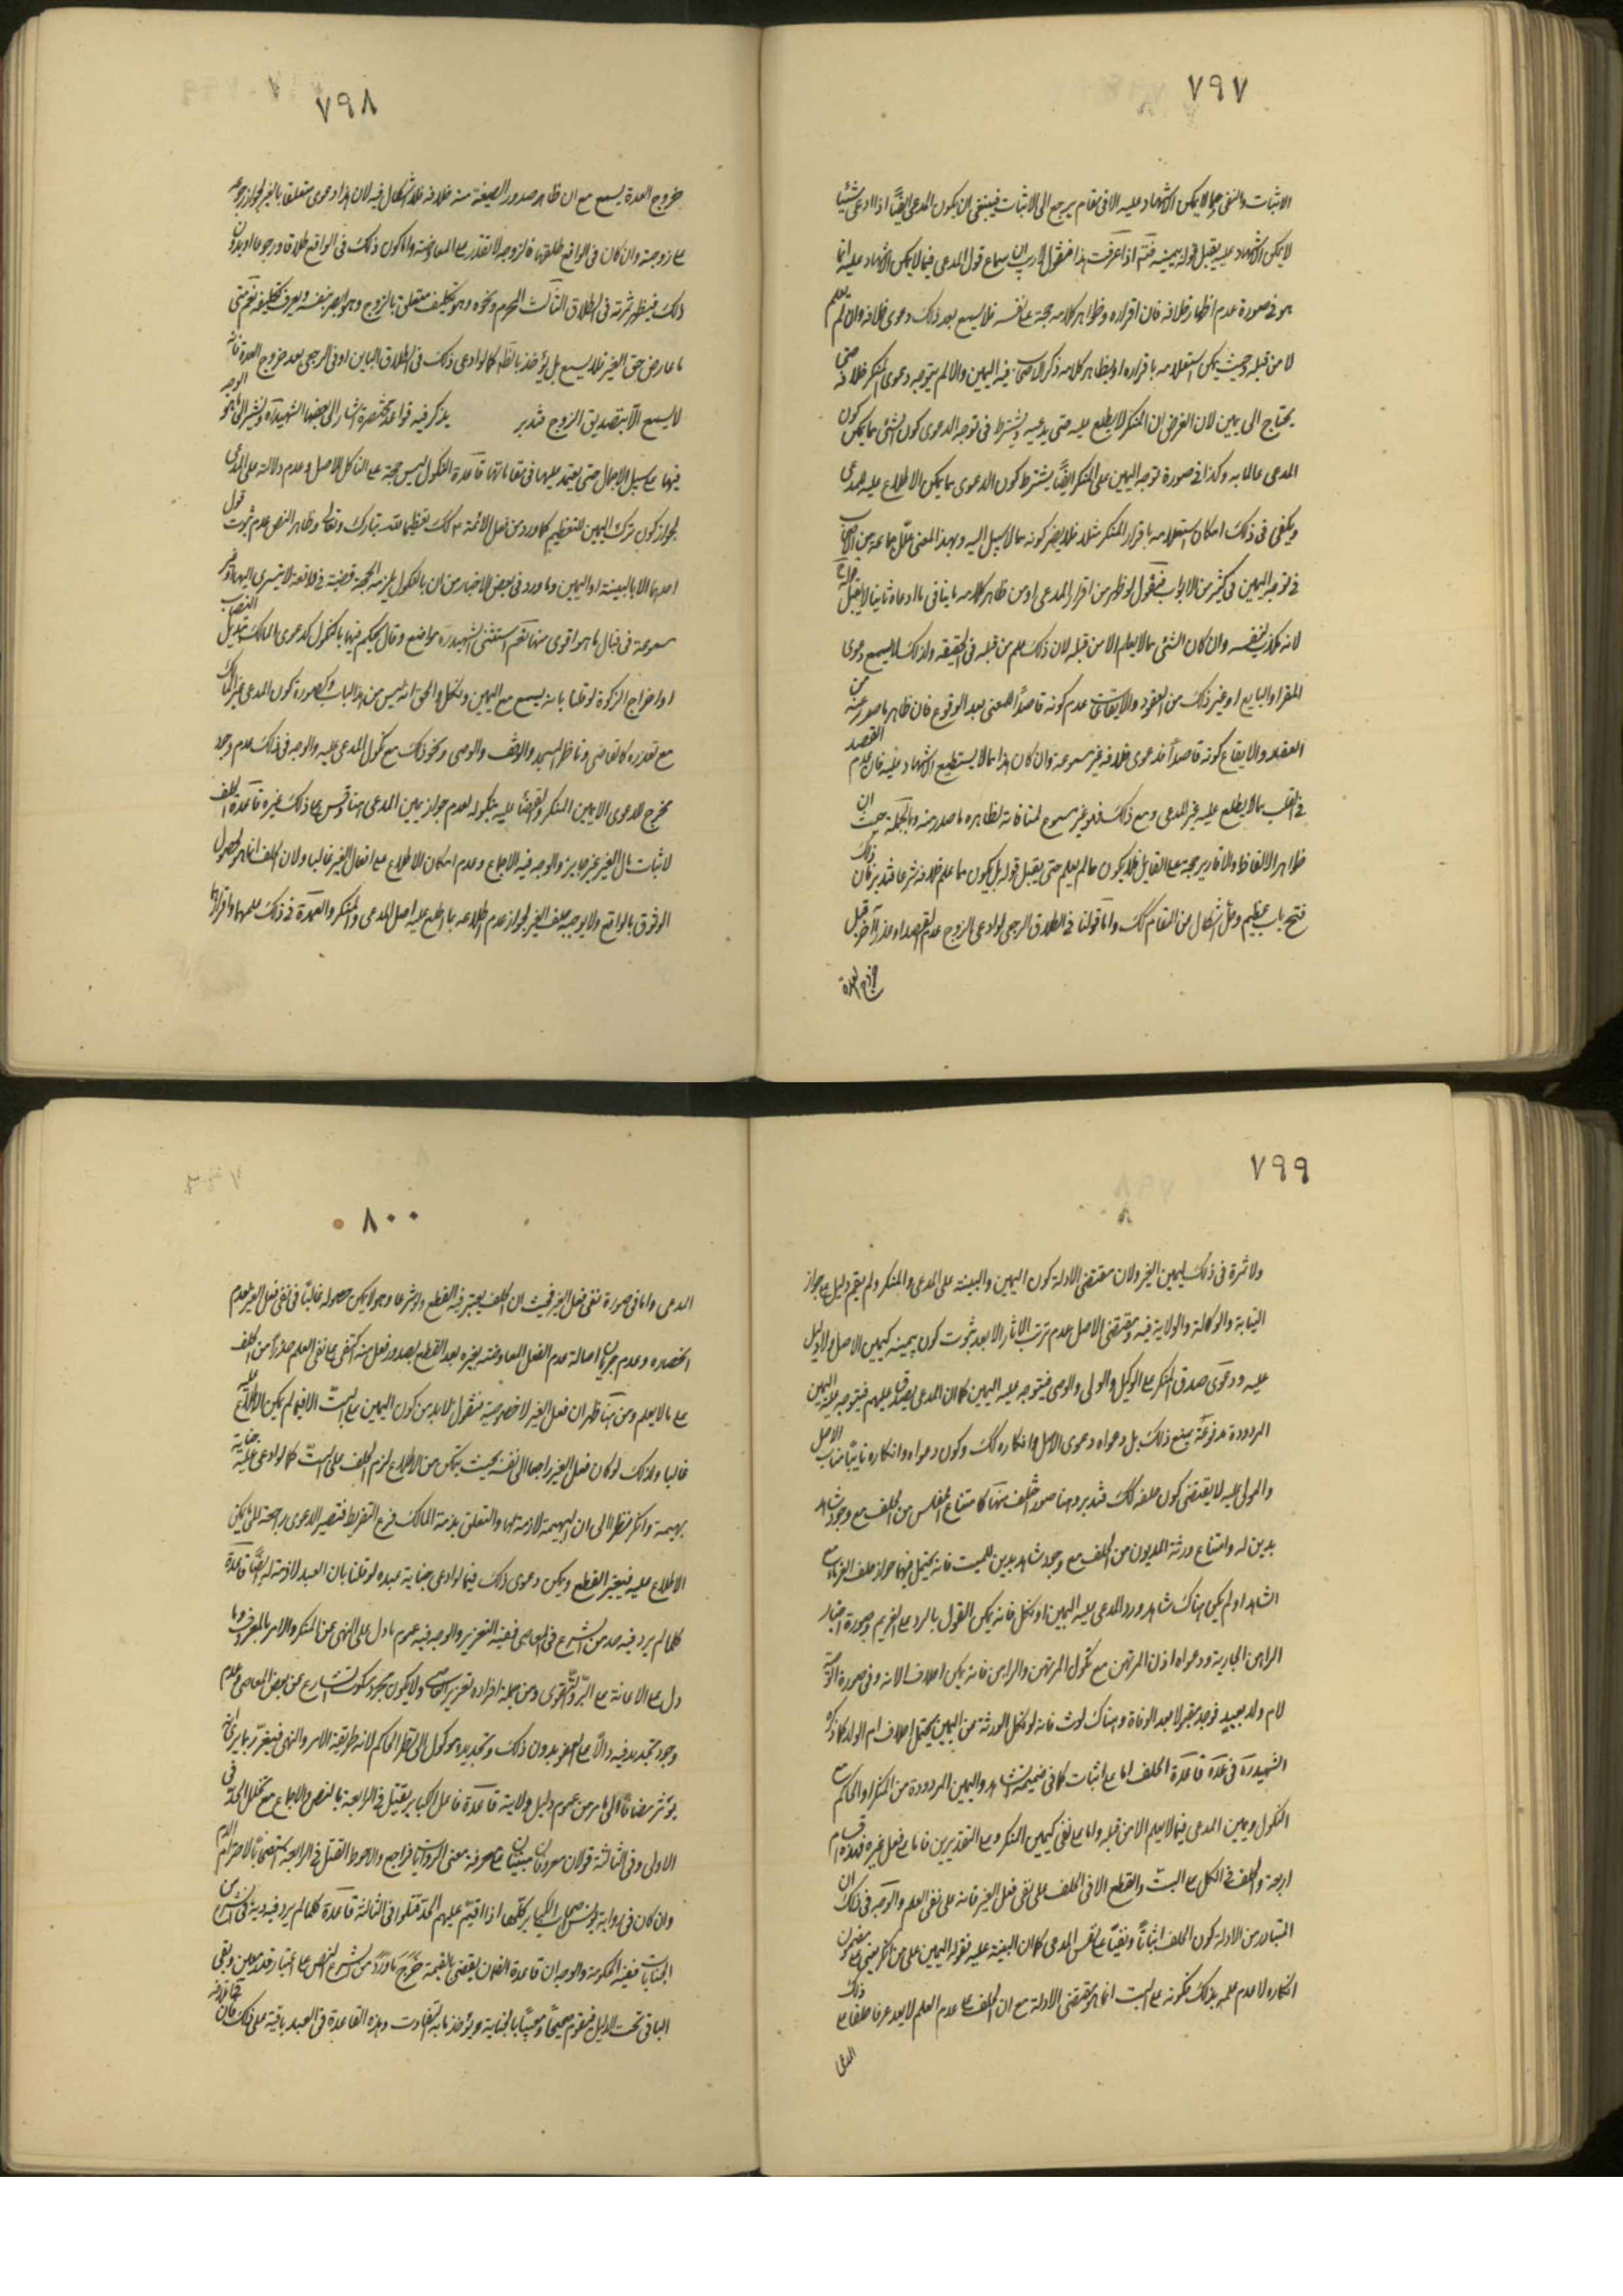 ٧٩٧
الاثبات والنفى مما لا يمكن الاشهاد عليه الا فى مقام يرجع الى الاثبات فينبغى ان يكون المدعى ايضا اذا ادعى شيئا
لا يمكن الاشهاد عليه يقبل قوله بيمينه فتم اذا عرفت هذا فنقول لا ريب ان سماع قول المدعى فيما لا يمكن الاشهاد عليه انما
هو فى صورة عدم اظهار خلافه فان اقراره وظواهر كلامه حجة على نفسه فلا يسمع بعد ذلك دعوى خلافه وان لم يعلم
لا من قبله وحيث يمكن استعلامه باقراره او بظاهر كلامه ذكر الاصحاب فيه اليمين والا لم يتوجه دعوى المنكر خلافه حتى
يحتاج الى يمين لان الغرض ان المنكر لا يطلع عليه حتى يدعيه ويشترط فى توجه الدعوى كون الشئ مما يمكن كون
المدعى عالما به وكذا فى صورة توجه اليمين على المنكر ايضا يشترط كون الدعوى مما يمكن الاطلاع عليه للمدعى
ويكفى فى ذلك امكان استعلامه باقرار المنكر مثلا فلا يضر كونه مما لا سبيل اليه وبهذا المعنى علل جماعة من الاصحاب
فى توجه اليمين فى كثير من الابواب فنقول لو ظهر من اقرار المدعى او من ظاهر كلامه ما ينافى ما ادعاه ثانيا لا يقبل
لانه مكذب لنفسه وان كان الشئ مما لا يعلم الا من قبله لان ذلك علم من قبله فى الحقيقة ولذلك لا يسمع دعوى
المقر او البايع او غير ذلك من العقود والايقاعات عدم كونه قاصدا للمعنى بعد الوقوع فان ظاهر ما صدر عنه من
العقد والايقاع كونه قاصدا فدعوى خلافه غير مسموعة وان كان هذا مما لا يستطيع الاشهاد عليه فان عدم القصد
فى القلب مما لا يطلع عليه غير المدعى ومع ذلك فهو غير مسموع لمنافاته لظاهره ما صدر منه وبالجملة حيث ان
ظواهر الالفاظ والاقارير حجة على القايل فلا يكون مما لم يعلم حتى يقبل قوله بل يكون مما علم خلافه شرعا فتدبر فان ذلك
فتح باب عظيم وحل اشكال من المقام لك واما قولنا فى الطلاق الرجعى لو ادعى الزوج عدم القصد او عذرا آخر قبل
خروج العدة
٧٩٨
خروج العدة يسمع مع ان ظاهر صدور الصيغة منه خلافه فلا اشكال فيه لان هذا دعوى متعلقا بالغير لجواز رجوعه
على زوجته وان كان فى الواقع طلقها فالزوجة لا تقدر على المعاوضة واما كون ذلك فى الواقع طلاقا ورجوعا او بدون
ذلك فيظهر ثمرته فى الطلاق الثالث المحرم ونحوه وهو تكليف متعلق بالزوج وهو ابصر بنفسه ويعرف تكليفه نعم متى
ما عارض حق الغير فلا يسمع بل يؤخذ بالظاهر كما لو ادعى ذلك فى الطلاق الباين او فى الرجعى بعد خروج العدة فانه
لا يسمع الا بتصديق الزوج فتدبر يذكر فيه قواعد مختصرة اشار الى بعضها الشهيد ره ونشير الى ما هو الوجه
فيها على سبيل الاجمال حتى يعتمد عليها فى مقاماتها قاعدة النكول ليس حجة على الناكل للاصل وعدم دلالته على المدعى
لجواز كون ترك اليمين للتعظيم كما ورد من فعل الائمة ع ذلك تعظيما لله تبارك وتعالى وظاهر النص عدم ثبوت قول
احدهما الا بالبينة او اليمين وما ورد فى بعض الاخبار من ان بالنكول يلزمه الحجة قضية فى واقعة لا يتسرى اليها وغير
مسموعة فى قبال ما هو اقوى منها نعم استثنى الشهيد ره مواضع وقال يحكم فيها بالنكول كدعوى المالك تبديل النصاب
او اخراج الزكوة لو قلنا بانه يسمع مع اليمين ونكل والحق انه ليس من هذا الباب وكصورة كون المدعى غير المالك
مع تعذره كالقاضى وناظر المسجد والوقف والوصى ونحو ذلك مع نكول المدعى عليه والوجه فى ذلك عدم وجود
مخرج للدعوى الا يمين المنكر والقضاء عليه بنكوله لعدم جواز يمين المدعى هنا وقس على ذلك غيره قاعدة الحلف
لاثبات مال الغير غير جايز والوجه فيه الاجماع وعدم امكان الاطلاع على افعال الغير غالبا ولان الحلف انما هو لحصول
الوثوق بالواقع ولا يوجبه حلف الغير لجواز عدم اطلاعه بما اطلع عليه اصل المدعى والمنكر والعمدة فى ذلك علمهما واقرارهما
٧٩٩
ولا ثمرة فى ذلك ليمين الغير ولان مقتضى الادلة كون اليمين والبينة على المدعى والمنكر ولم يقم دليل على جواز
النيابة والوكالة والولاية فيه ومقتضى الاصل عدم ترتب الاثار الا بعد ثبوت كون يمينه كيمين الاصل ولا دليل
عليه ودعوى صدق المنكر على الوكيل والولى والوصى فيتوجه عليه اليمين كما ان المدعى يصدق عليهم فيتوجه عليه اليمين
المردودة مدفوعة بمنع ذلك بل دعواه دعوى الاصل وانكاره كك وكون دعواه وانكاره نايبا مناب الاصل
والمولى عليه لا يقتضى كون حلفه كك فتدبر وهنا صور اختلف فيها كامتناع المفلس من الحلف مع وجود شاهد
بدين له وامتناع ورثة المديون من الحلف مع وجود شاهد بدين للميت فانه يحتمل فيهما جواز حلف الغرماء مع
الشاهد او لم يكن هناك شاهد ورد المدعى عليه اليمين او نكل فانه يمكن القول بالرد على الغريم وصورة اخبار
الراهن الجارية ودعواه اذن المرتهن مع نكول المرتهن والراهن فانه يمكن احلاف الامة وفى صورة الوصية
لام ولد بعبد فوجد مقبرا بعد الوفاة وهناك لوث فانه لو نكل الورثة عن اليمين يحتمل احلاف ام الولد كما ذكره
الشهيد ره فى عده قاعدة الحلف اما على اثبات كما فى ضميمة الشاهد واليمين المردودة من المنكر او الحاكم مع
النكول ويمين المدعى فيما لا يعلم الا من قبله واما على نفى كيمين المنكر وعلى التقديرين فاما على فعل غيره فهذه اقسام
اربعة والحلف فى الكل على البت والقطع الا فى الحلف على نفى فعل الغير فانه على نفى العلم والوجه فى ذلك ان
المتبادر من الادلة كون الحلف اثباتا ونفيا على نفس المدعى كما ان البينة عليه فقوله اليمين على من انكر يعنى على مضمون
انكاره لا عدم علمه بذلك فكونه على البت انما هو بمقتضى الادلة مع ان الحلف على عدم العلم لا يعد عرفا حلفا على ذلك
المدعى
٨٠٠
المدعى واما فى صورة نفى فعل الغير فحيث ان الحلف يعتبر فيه القطع ولو شرعا وهو لا يمكن حصوله غالبا فى نفى فعل الغير لعدم
انحصاره وعدم جريان اصالة عدم الفعل المعاوضة بغيره بعد القطع بصدور فعل منه اكتفى على نفى العلم حذرا من الحلف
على ما لا يعلم ومن هنا ظهر ان فعل الغير لا خصوصية فنقول لا بد من كون اليمين على البت الا فيما لم يكن الاطلاع عليه
غالبا ولذلك لو كان فعل الغير راجعا الى نفسه بحيث يتمكن من الاطلاع لزم الحلف على البت كما لو ادعى عليه جناية
بهيمة وانكر فنظرا الى ان البهيمة لا ذمة لها والتعلق بذمة المالك فرع التفريط فتصير الدعوى راجعة الى ما يمكن
الاطلاع عليه فيعتبر القطع ويمكن دعوى ذلك فيما لو ادعى جناية عبده لو قلنا بان العبد لا ذمة له ايضا قاعدة
كلما لم يرد فيه حد من الشرع فى المعاصى ففيه التعزير والوجه فيه عموم ما دل على النهى عن المنكر والامر بالمعروف وما
دل على الاعانة على البر والتقوى ومن جملة افراده تعزير العاصى ولا يكون مجرد سكوت الشارع عن بعض المعاصى وعدم
وجود تحديد فيه دالا على العفو بدون ذلك وتحديده موكول الى نظر الحاكم لانه طريقة الامر والنهى فيعزر بما يراه
يؤثر مضافا الى ما مر من عموم دليل ولايته قاعدة فاعل الكباير يقتل فى الرابعة بالنص والاجماع مع تخلل الحد فى
الاولى وفى الثالثة قولان معروفان مبنيان على معرفة معنى الروايات فراجع والاحوط القتل فى الرابعة استصحابا لاحترام الدم
وان كان فى رواية يونس اصحاب الكباير كلها اذا اقيم عليهم الحد قتلوا فى الثالثة قاعدة كلما لم يرد فيه دية فى الشرع من
الجنايات ففيه الحكومة والوجه ان قاعدة الضمان يقتضى بالقيمة خرج ما ورد من الشرع النص على اعتبار قدر معين وبقى
الباقى تحت الدليل فيقوم صحيحا ومعيبا بالجناية ويؤخذ ما به التفاوت وهذه القاعدة فى العبد باقية على ذلك فان